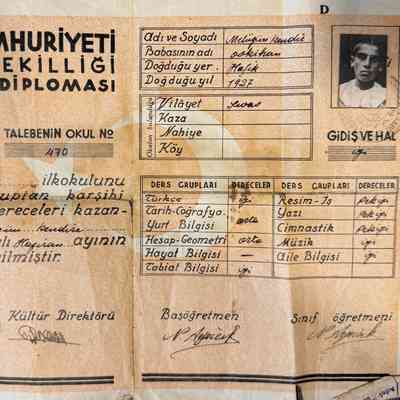 D
MHURİYETİ
EKİLLİĞİ
DİPLOMASI
TALEBENİN OKUL No
470
Adı ve Soyadı
Babasının adı
Doğduğu yer
Doğduğu yıl 1927
Okulun bulunduğu
Vilâyet Sivas
Kaza
Nahiye
Köy
GİDİŞ VE HAL
iyi
ilkokulunu
karşihi
dereceleri kazan-
Haziran ayının
ilmiştir.
DERS GRUPLARI DERECELER
Türkçe iyi
Tarih-Coğrafya
Yurt Bilgisi orta
Hesap-Geometri orta
Hayat Bilgisi —
Tabiat Bilgisi iyi
DERS GRUPLARI DERECELER
Resim-İş Pekiyi
Yazı Pekiyi
Cimnastik Pekiyi
Müzik iyi
Aile Bilgisi iyi
Kültür Direktörü
Başöğretmen
Sınıf öğretmeni